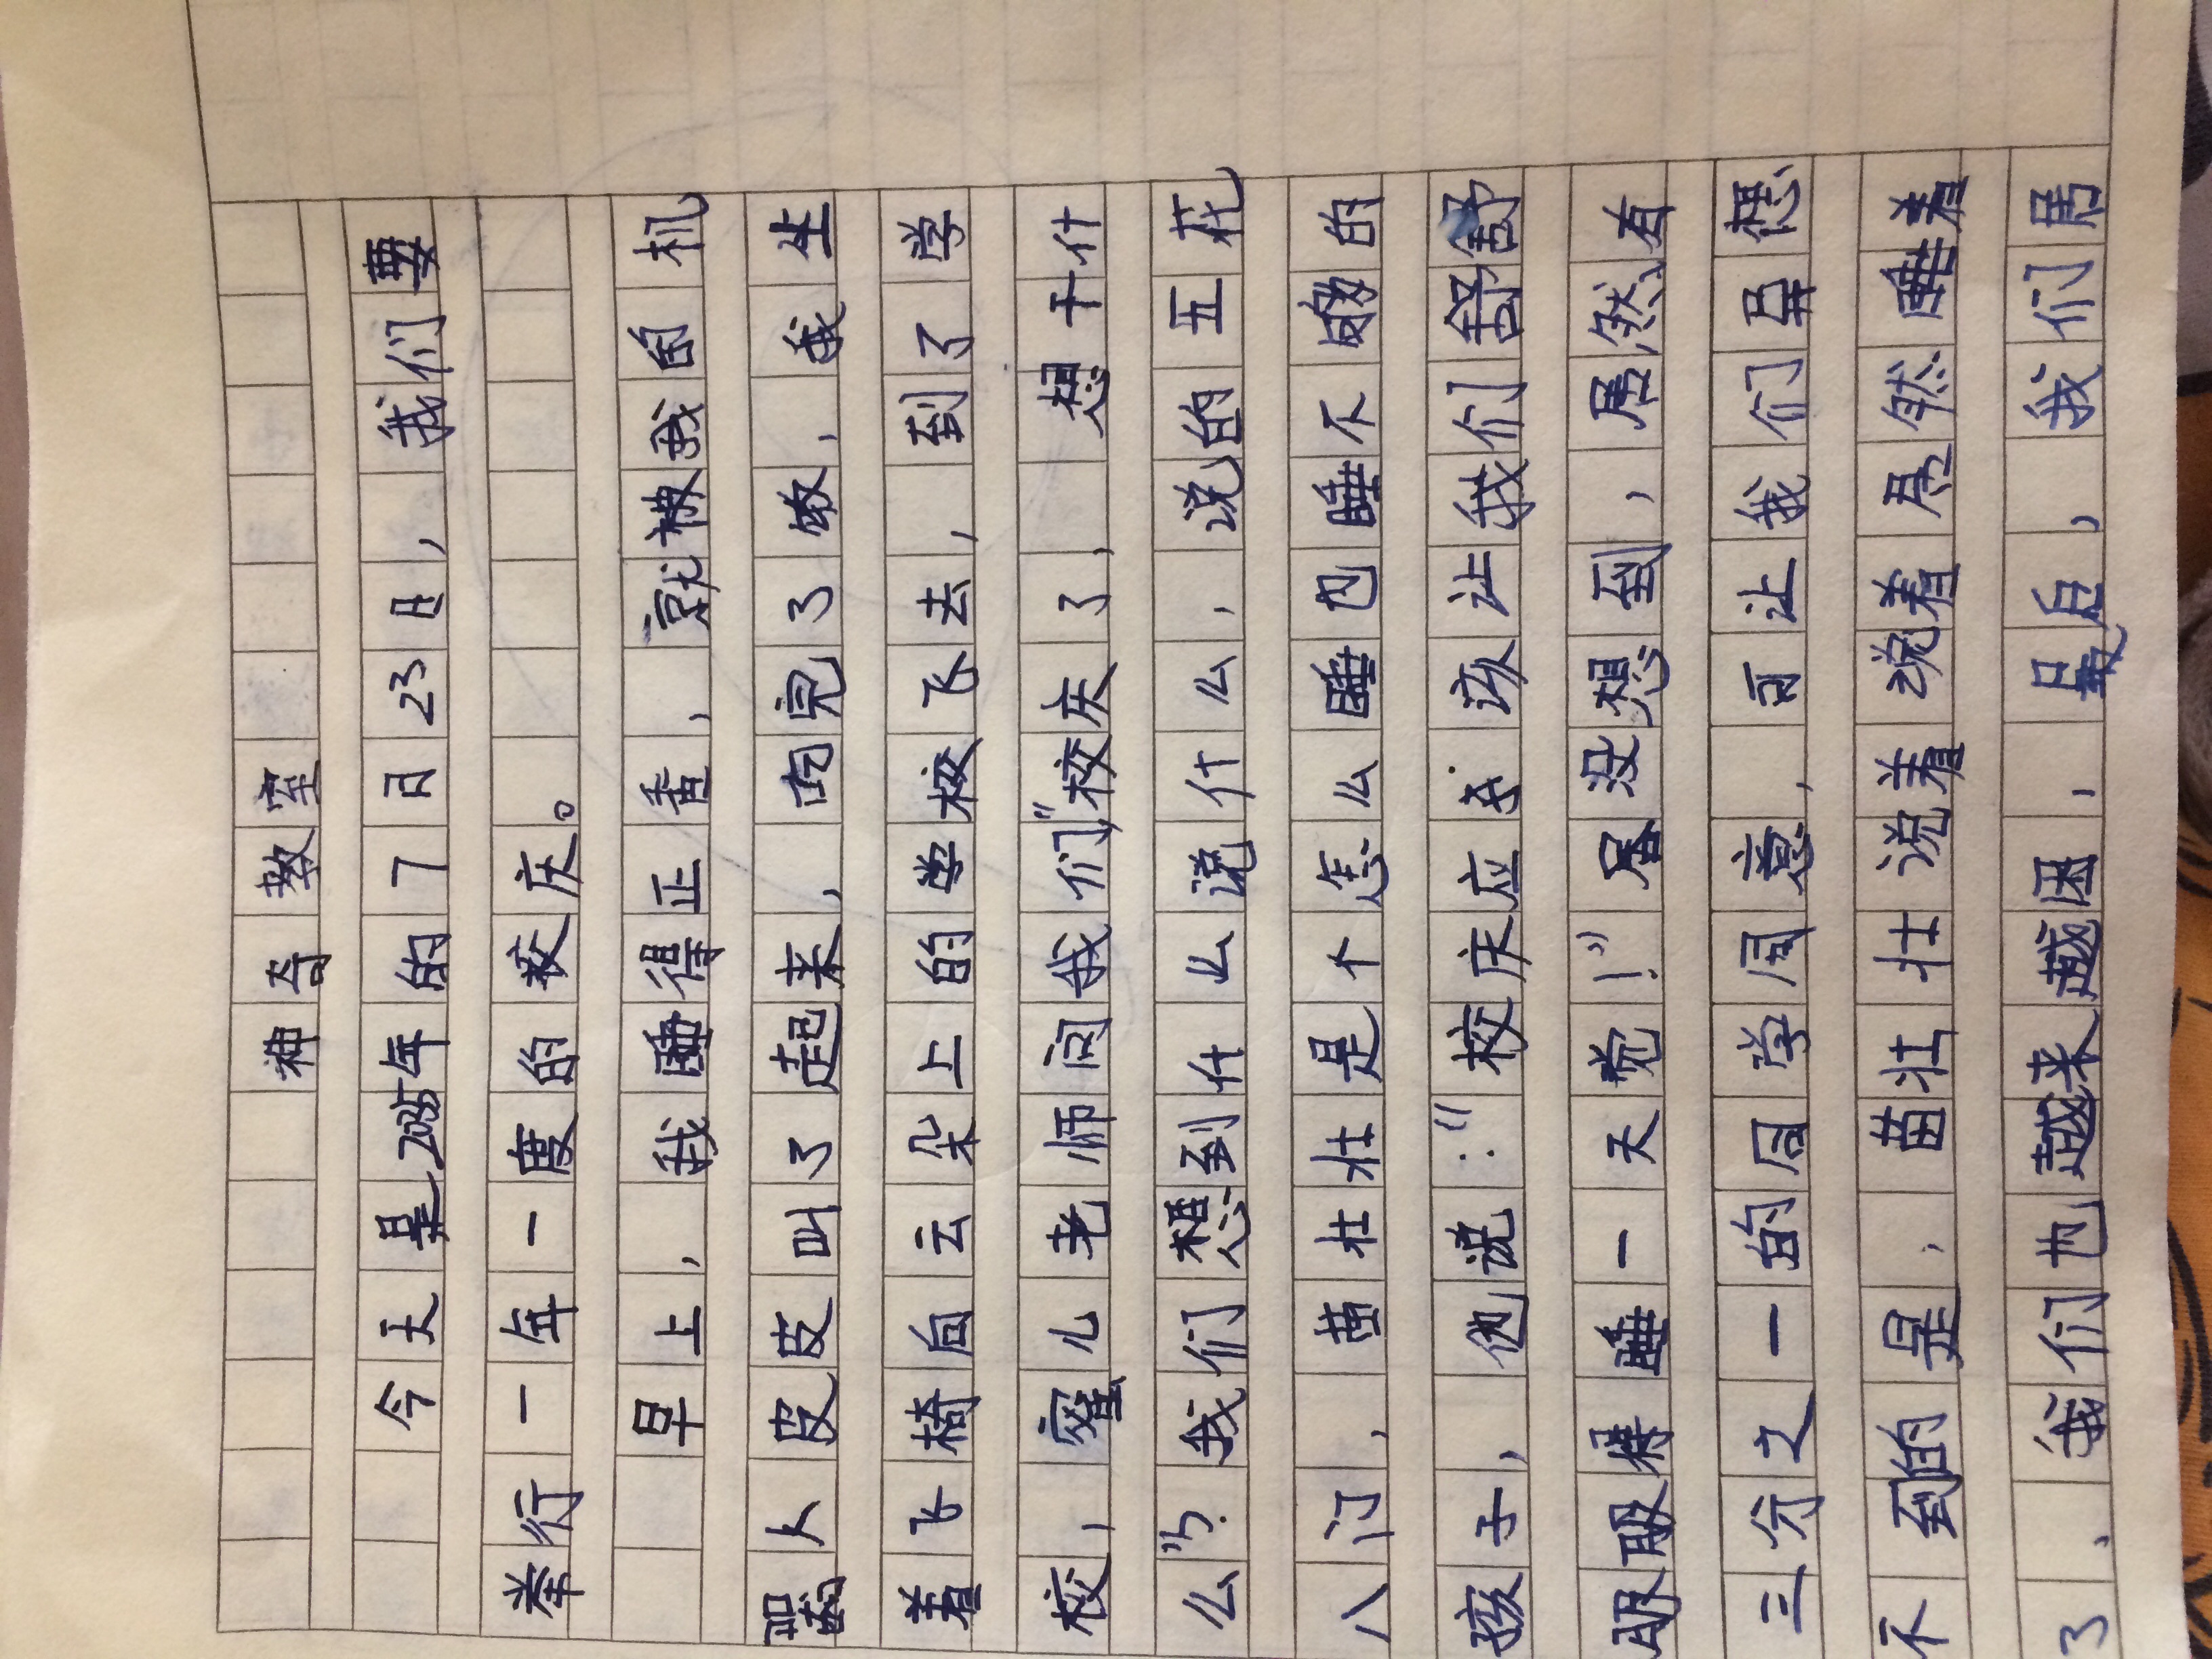 神奇教室
今天是2035年的7月23日，我们要
举行一年一度的校庆。
早上，我睡得正香，就被我的机
器人皮皮叫了起来，吃完了饭，我坐
着飞椅向云朵上的学校飞去，到了学
校，蜜儿老师问我们“校庆了，想干什
么”？我们想到什么说什么，说的五花
八门，苗壮壮是个怎么睡也睡不够的
孩子，他说：“校庆应该让我们舒舒
服服得睡一天觉！”居没想到，居然有
三分之一的同学同意，可让我们早想
不到的是，苗壮壮说着说着居然睡着
了，我们也越来越困，最后，我们居